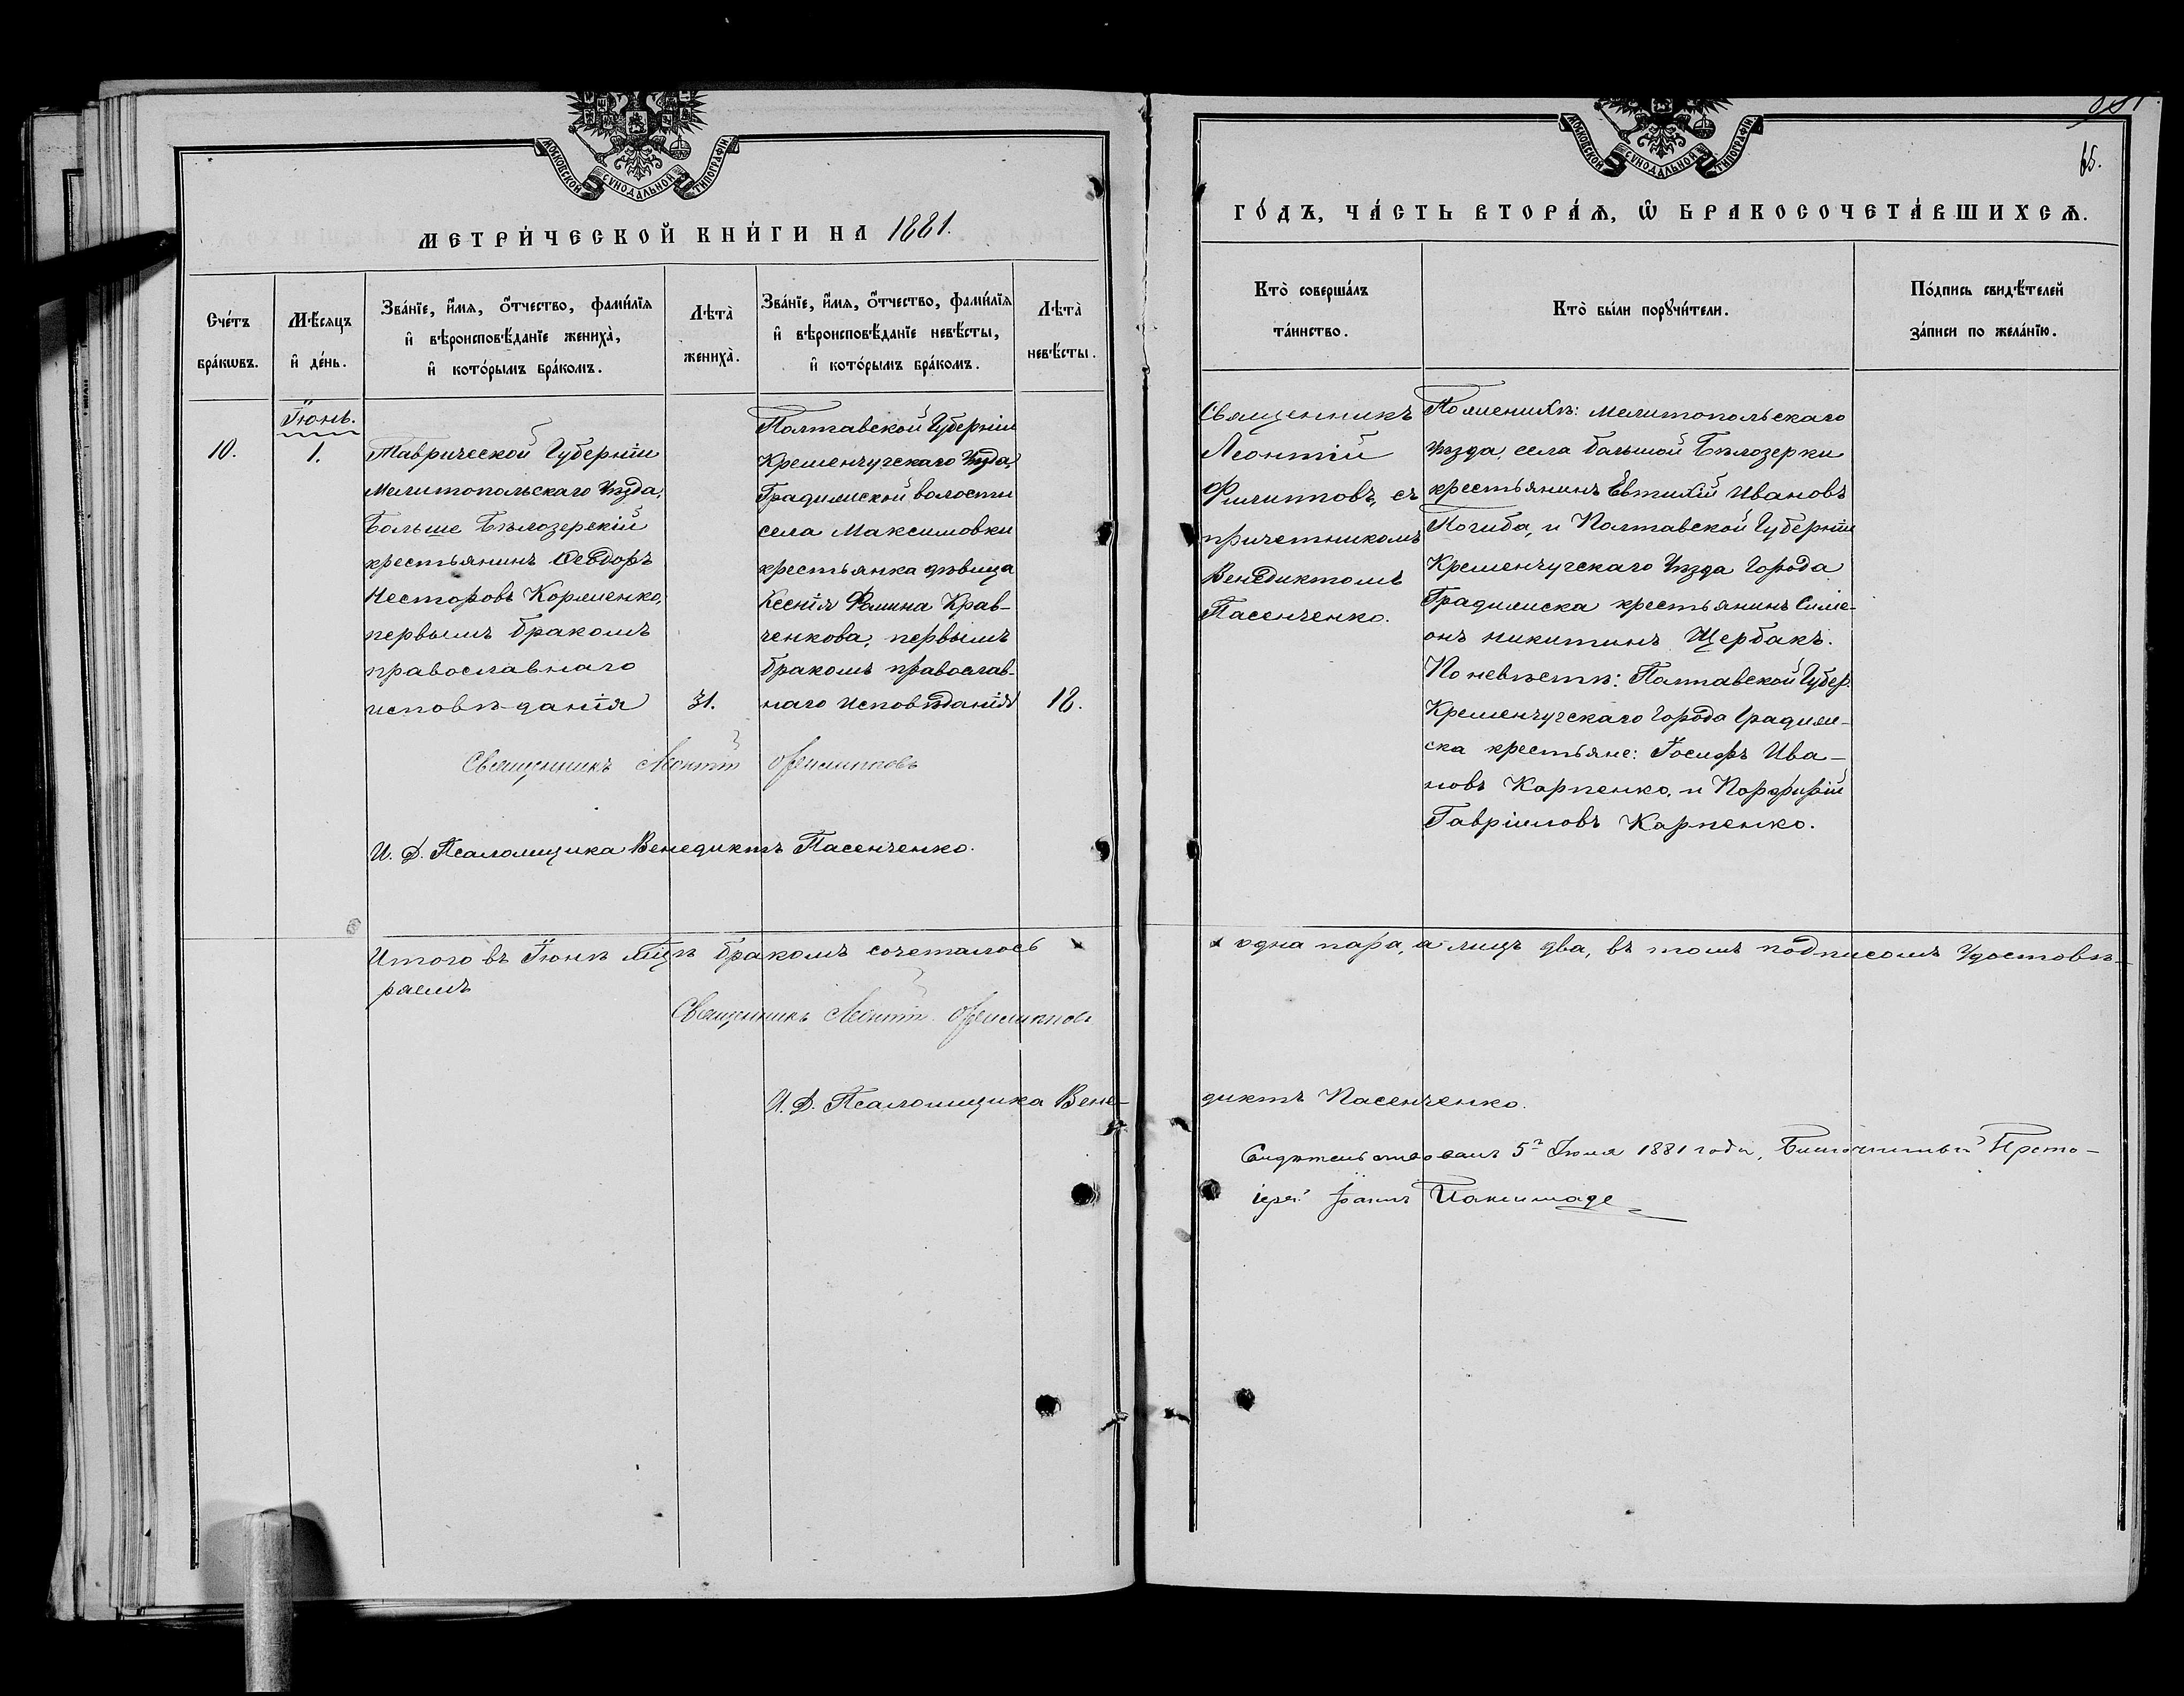 МОСКОВСКОЙ СѴНОДАЛЬНОЙ ТИПОГРАФІИ
МЕТРИ́ЧЕСКОЙ КНИ́ГИ НА 1881.
Сче́тъ бра́кѡвъ.
Мѣ́сяцъ и҆ де́нь.
Зва́нїе, и҆́мѧ, ѻ҆́тчество, фами́лїѧ и҆ вѣроисповѣ́данїе жениха̀, и҆ кото́рымъ бра́комъ.
Лѣта̀ жениха̀.
Зва́нїе, и҆́мѧ, ѻ҆́тчество, фами́лїѧ и҆ вѣроисповѣ́данїе невѣ́сты, и҆ кото́рымъ бра́комъ.
Лѣта̀ невѣ́сты.
10.
Іюнь.
1.
Таврической Губерніи
Мелитопольскаго Уѣзда,
Больше Бѣлозерскій
крестьянинъ Ѳеодоръ
Несторовъ Корменко,
первымъ бракомъ
православнаго
исповѣданія
31.
Полтавской Губерніи
Кременчугскаго Уѣзда,
Градижской волости
села Максимовки
крестьянка дѣвица
Ксенія Фомина Крав-
ченкова, первымъ
бракомъ православ-
наго исповѣданія
18.
Священникъ Леонтій Филипповъ
И. Д. Псаломщика Венедиктъ Пасенченко.
Итого въ Іюнѣ мцѣ бракомъ сочеталось
раемъ
Священникъ Леонтій Филипповъ
И. Д. Псаломщика Вене-
МОСКОВСКОЙ СѴНОДАЛЬНОЙ ТИПОГРАФІИ
65.
ГО́ДЪ, ЧА́СТЬ ВТОРА́Ѧ, Ѡ҆ БРАКОСОЧЕТА́ВШИХСѦ.
Кто̀ соверша́лъ та́инство.
Кто̀ бы́ли порꙋчи́тели.
По́дпись свидѣ́телей за́писи по жела́нїю.
Священникъ
Леонтій
Филипповъ, съ
причетникомъ
Венедиктомъ
Пасенченко.
По женихѣ: Мелитопольскаго
Уѣзда, села Большой Бѣлозерки
крестьянинъ Евтихій Ивановъ
Погиба, и Полтавской Губерніи
Кременчугскаго Уѣзда Города
Градижска крестьянинъ Симе-
онъ Никитинъ Щербакъ.
По невѣстѣ: Полтавской Губер.
Кременчугскаго Города Градиж-
ска крестьяне: Іосифъ Ива-
новъ Карпенко, и Порфирій
Гавріиловъ Карпенко.
одна пара, а лицъ два, въ томъ подписомъ Удостовѣ-
диктъ Пасенченко.
Свидѣтельствовалъ 5го Іюля 1881 года, Благочинный Прото-
іерей Іоаннъ